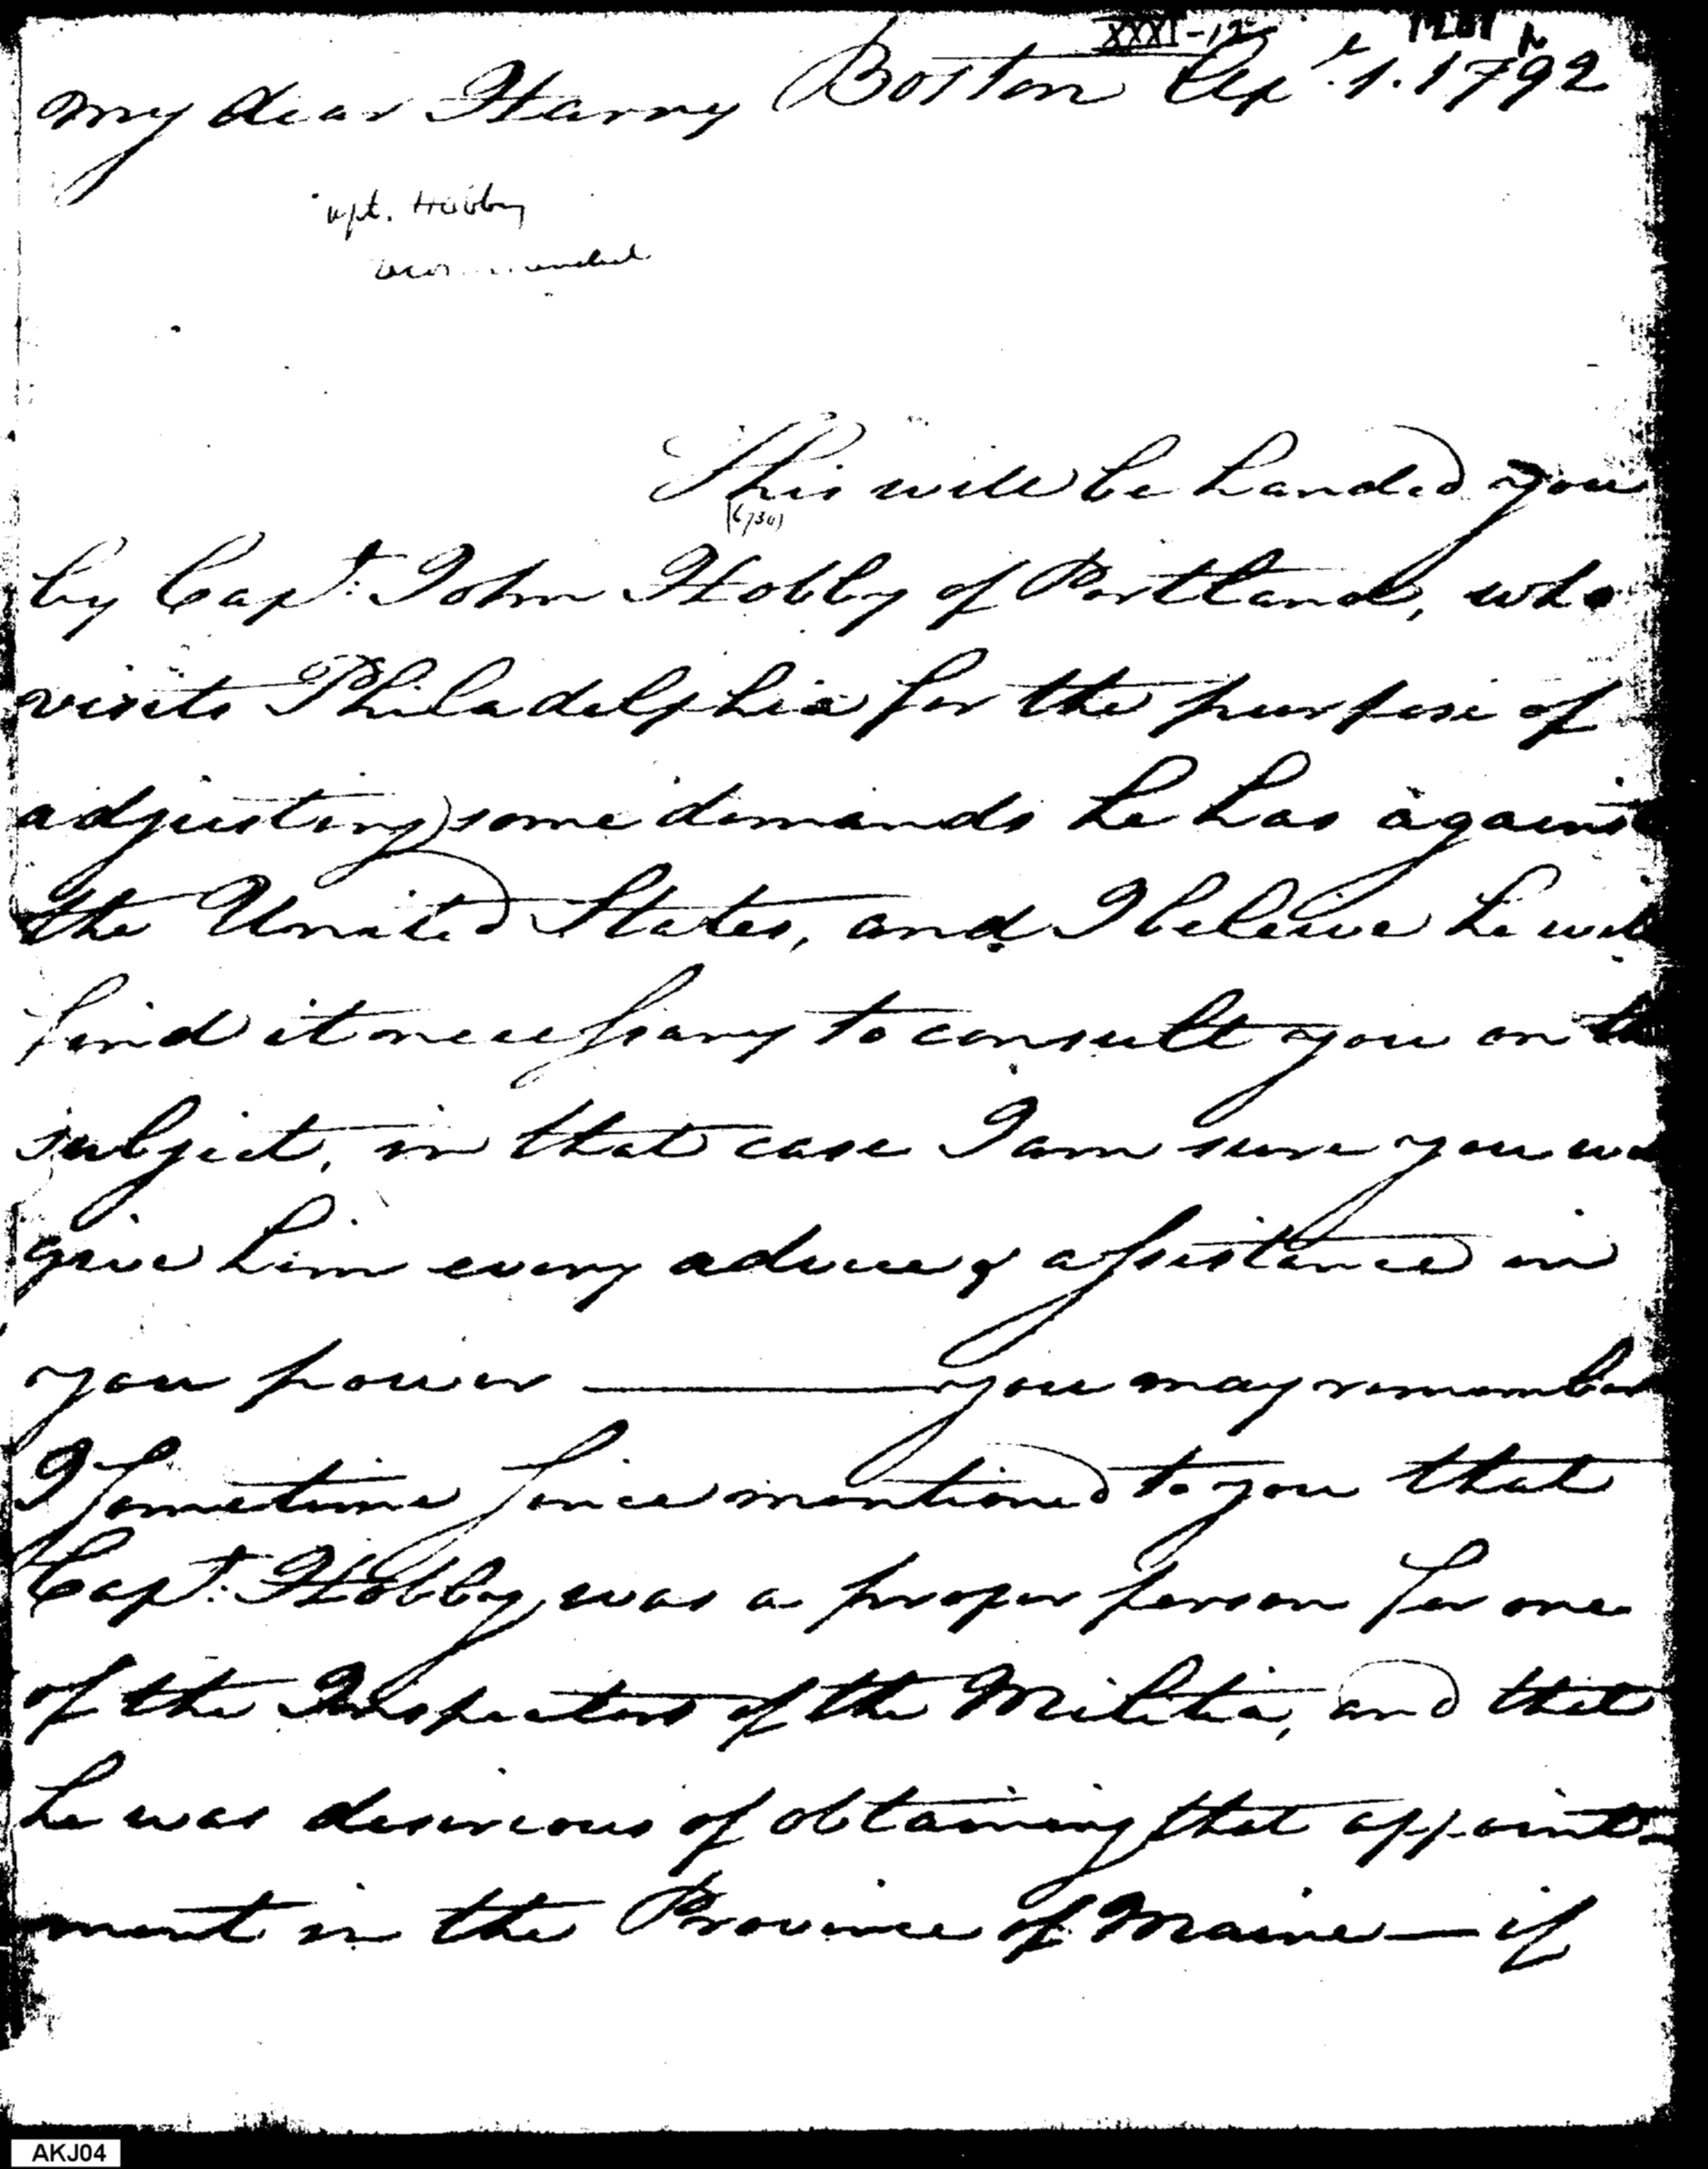 XXXI-12
My dear Harry Boston Apl. 1. 1792
Capt. Hobby
recommended
This will be handed you
(6730)
by Capt. John Hobby of Portland, who
visits Philadelphia for the purpose of
adjusting some demands he has against
the United States, and I beleive he will
find it necessary to consult you on the
subject, in that case I am sure you will
give him every advice & assistance in
you power — you may remember
I sometime since mentioned to you that
Capt. Hobby was a proper person for one
of the Inspectors of the Militia, and that
he was desireous of obtaining that appoint-
ment in the Province of Maine — if
AKJ04